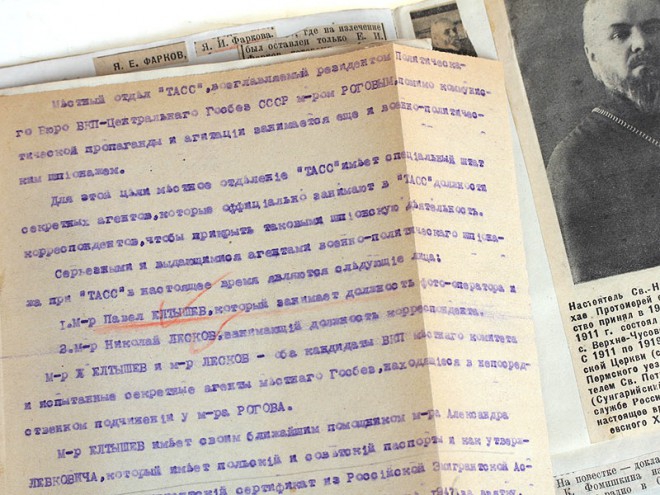 Я. Е. ФАРКОВ.
Я. И. Фаркова.
где на излечение
был оставлен только Е. И.
Мѣстный отдѣл "ТАСС", возглавляемый резидентом Политическа-
го Бюро ВКП-Центральнаго Госбез СССР м-ром РОГОВЫМ, помимо комунис-
тической пропаганды и агитаціи занимается еще и военно-политичес-
ким шпіонажем.
Для этой цѣли мѣстное отдѣленіе "ТАСС" имѣет спеціальный штат
секретных агентов, которые оффиціально занимают в "ТАСС" должности
корреспондентов, чтобы прикрыть таковыми шпіонскую дѣятельность.
Серьезными и выдающимися агентами военно-политическаго шпіона-
жа при "ТАСС" в настоящее время являются слѣдующіе лица:
1. М-р Павел ЕЛТЫШЕВ, который занимает должность фото-оператора и
2. М-р Николай ЛЕСКОВ, занимающій должность корреспондента.
М-р Ж ЕЛТЫШЕВ и м-р ЛЕСКОВ - оба кандидаты ВКП мѣстнаго комитета
и испытанные секретные агенты мѣстнаго Госбез, находящіеся в непосред-
ственном подчиненіи у м-ра РОГОВА.
М-р ЕЛТЫШЕВ имѣет своим ближайшим помощником м-ра Александра
ЛЕВКОВИЧА, который имѣет польскій и совѣтскій паспорты и как утвер-
сертификат из Россійской Эмигрантской Ас-
Настоятель Св.-Н
хав. Протоиерей
ство принял в 19
1911 г. состоял
с. Верхне-Чусов
С 1911 по 1919
ской Церкви (с
Пермского уез
телем Св. Пет
(Сунгарийский
службе Росси
настоящее в
весного Х
На повестке — докла
Е. Фомишкина и
радно в С